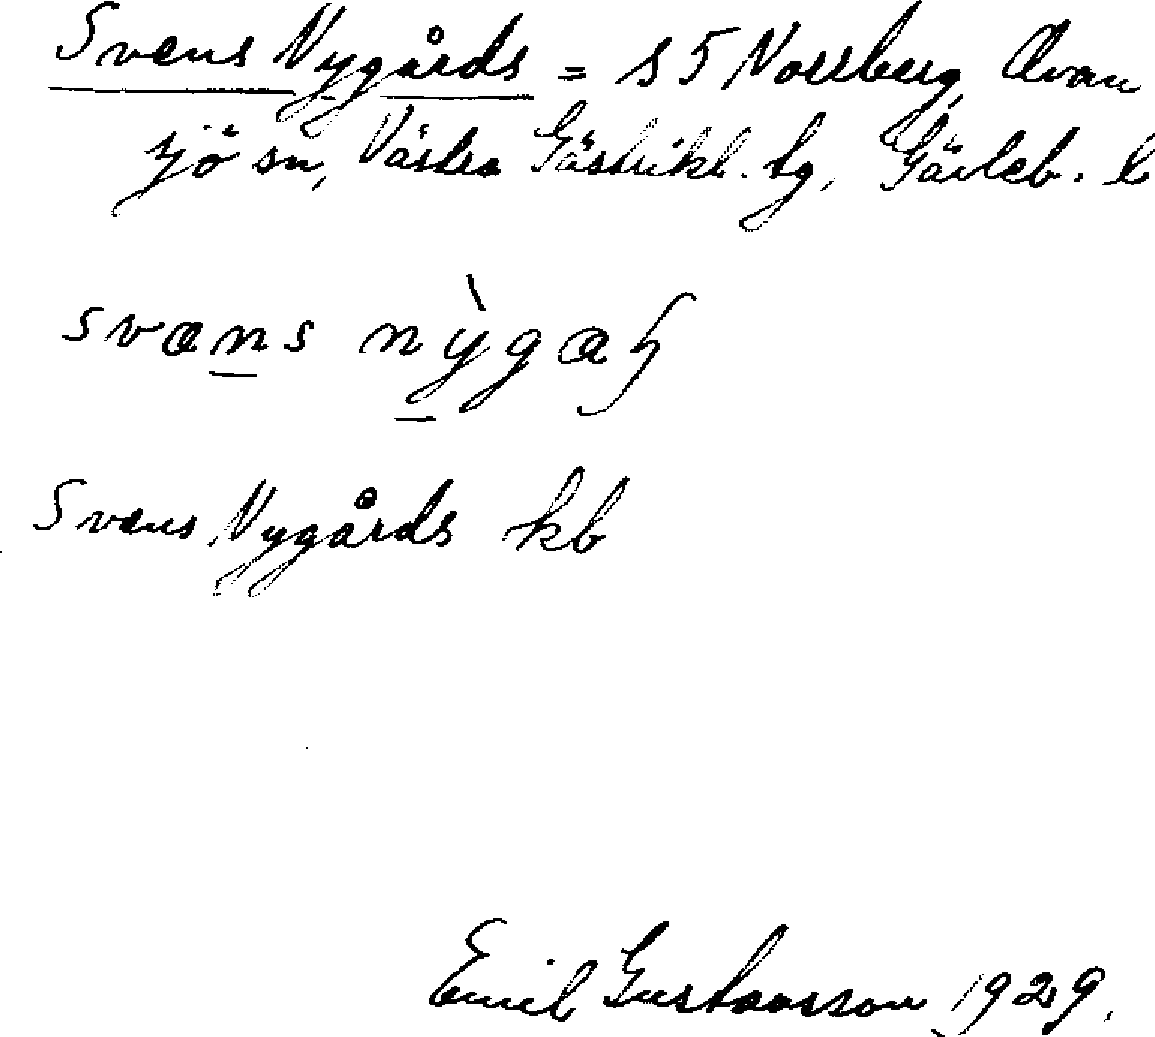 Svens Nygårds = 15 Norrberg, Ovan
sjö sn, Västra Gästrikl. tg, Gävleb. l
svæns nỳgaʂ
Svens Nygårds kb
Emil Gustavsson 1929.